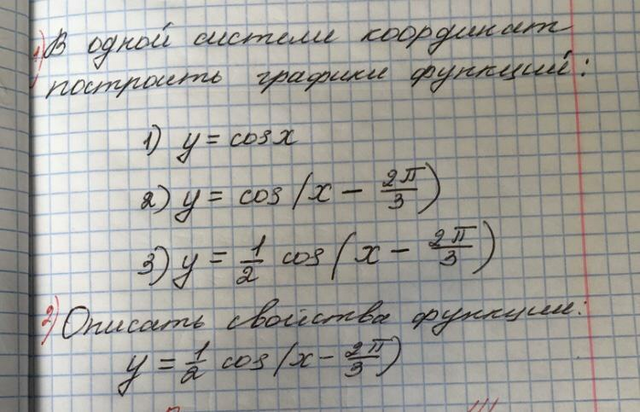 1) В одной системе координат
построить графики функций:
1) y = cos x
2) y = cos(x - 2π/3)
3) y = 1/2 cos(x - 2π/3)
2) Описать свойства функции:
y = 1/2 cos(x - 2π/3)